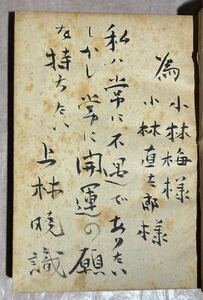 為
小林梅様
小林直太郎様
私は常に不遇でありたい
しかし常に開運の願
を持ちたい
上林暁識